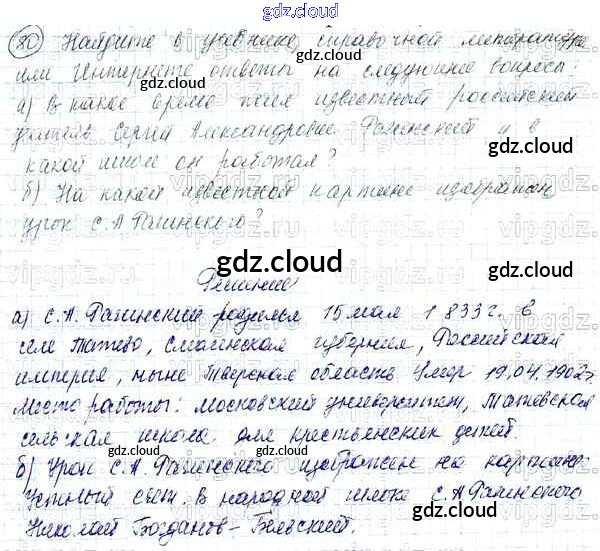 gdz.cloud
80 Найдите в учебнике, справочной литературе
или Интернете ответы на следующие вопросы:
а) В какое время жил известный российский
учитель Сергей Александрович Рачинский и в
какой школе он работал?
б) На какой известной картине изображён
урок С.А Рачинского?
Решение
а) С.А. Рачинский родился 15 мая 1833г. в
селе Татево, Смоленская губерния, Российская
империя, ныне Тверская область Умер 19.04.1902г.
Место работы: Московский университет, Татевская
сельская школа для крестьянских детей.
б) Урок С.А. Рачинского изображён на картине
Устный счёт. В народной школе С.А Рачинского
Николай Богданов-Бельский.
gdz.cloud
gdz.cloud
gdz.cloud
gdz.cloud
gdz.cloud
gdz.cloud